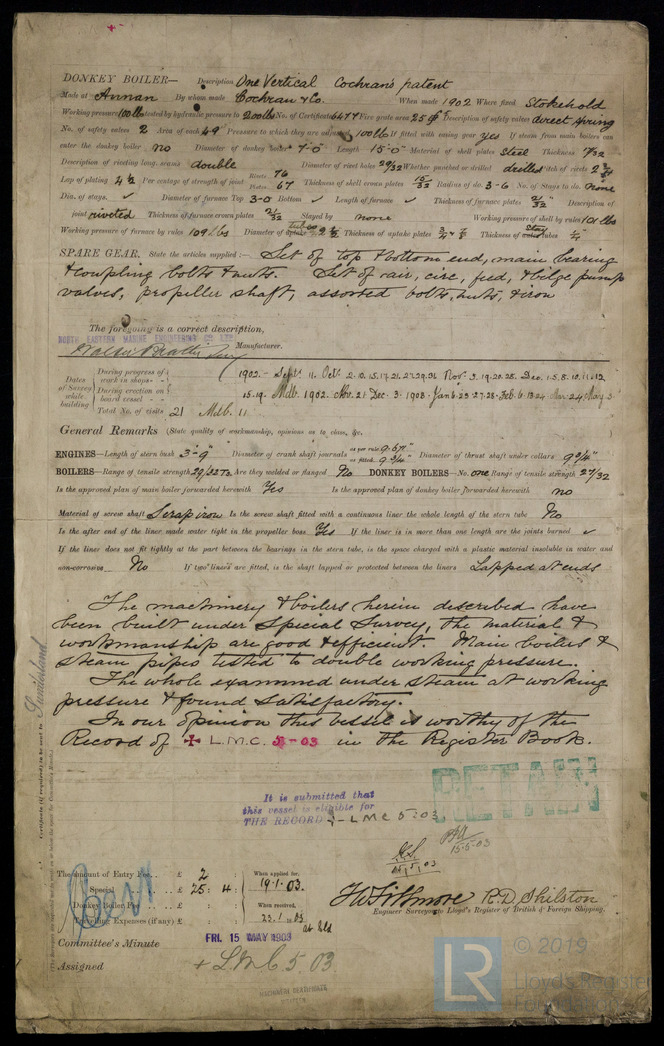 DONKEY BOILER— Description One Vertical Cochran's patent
Made at Annan By whom made Cochran & Co. When made 1902 Where fixed Stokehold
Working pressure 100lb tested by hydraulic pressure to 200lbs No. of Certificate 6477 Fire grate area 25 Description of safety valves direct spring
No. of safety valves 2 Area of each 49 Pressure to which they are adjusted 100lb If fitted with easing gear yes If steam from main boilers can
enter the donkey boiler no Diameter of donkey boiler 7-0 Length 15-0 Material of shell plates Steel Thickness
Description of riveting long. seams double Diameter of rivet holes 29/32 Whether punched or drilled drilled Pitch of rivets
Lap of plating 4 1/2 Per centage of strength of joint Rivets 76 Plates 67 Thickness of shell crown plates 15/32 Radius of do. 3-6 No. of Stays to do. none
Dia. of stays. ✓ Diameter of furnace Top 3-0 Bottom ✓ Length of furnace ✓ Thickness of furnace plates 21/32 Description of
joint riveted Thickness of furnace crown plates 21/32 Stayed by none Working pressure of shell by rules 101 lbs
Working pressure of furnace by rules 109 lbs Diameter of Thickness of uptake plates 3/4 & 7/8 Thickness of stay tubes 1/4"
SPARE GEAR. State the articles supplied:— Set of top & bottom end, main bearing
& coupling bolts & nuts. Set of air, circ, feed, & bilge pump
valves, propeller shaft, assorted bolts, nuts, & iron
The foregoing is a correct description,
NORTH EASTERN MARINE ENGINEERING CO LTD
Manufacturer.
Dates of Survey while building
During progress of work in shops - - 1902. - Sept. 11. Oct. 2.10.15.17.21.27.29.31 Nov. 3.19.20.28. Dec. 1.5.8.10.11.12
During erection on board vessel - - 15.19. Mdb. 1902. Nov. 21 Dec. 3. 1903. Jan 6.23.27.28. Feb. 6.13.24 Mar. 24 May 2
Total No. of visits 21 Mdb. 11
General Remarks (State quality of workmanship, opinions as to class, &c.
ENGINES—Length of stern bush 3'-9" Diameter of crank shaft journals as per rule as fitted 9 3/4" Diameter of thrust shaft under collars 9 3/4"
BOILERS—Range of tensile strength 29/32 Ts Are they welded or flanged No DONKEY BOILERS—No. one Range of tensile strength 27/32
Is the approved plan of main boiler forwarded herewith Yes Is the approved plan of donkey boiler forwarded herewith no
Material of screw shaft Scrap iron Is the screw shaft fitted with a continuous liner the whole length of the stern tube No
Is the after end of the liner made water tight in the propeller boss Yes If the liner is in more than one length are the joints burned ✓
If the liner does not fit tightly at the part between the bearings in the stern tube, is the space charged with a plastic material insoluble in water and
non-corrosive No If two liners are fitted, is the shaft lapped or protected between the liners Lapped at ends
The machinery & boilers herein described have
been built under Special Survey, the material &
workmanship are good & efficient. Main boilers &
steam pipes tested to double working pressure.
The whole examined under steam at working
pressure & found satisfactory.
In our opinion this vessel is worthy of the
Record of + L.M.C. 5-03 in the Register Book.
Sunderland
It is submitted that
this vessel is eligible for
THE RECORD + LMC 5.03
RETAIN
15.5.03
The Amount of Entry Fee. . £ 2 : : When applied for,
Special £ 25 : 4 : 19.1.03.
Donkey Boiler Fee £ : : When received,
Travelling Expenses (if any) £ : : 23.1.03
R.D. Shilston
Engineer Surveyor to Lloyd's Register of British & Foreign Shipping.
Committee's Minute FRI. 15 MAY 1903
Assigned + L.M.C. 5.03
MACHINERY CERTIFICATE
© 2019
LR
Lloyd's Register
Foundation